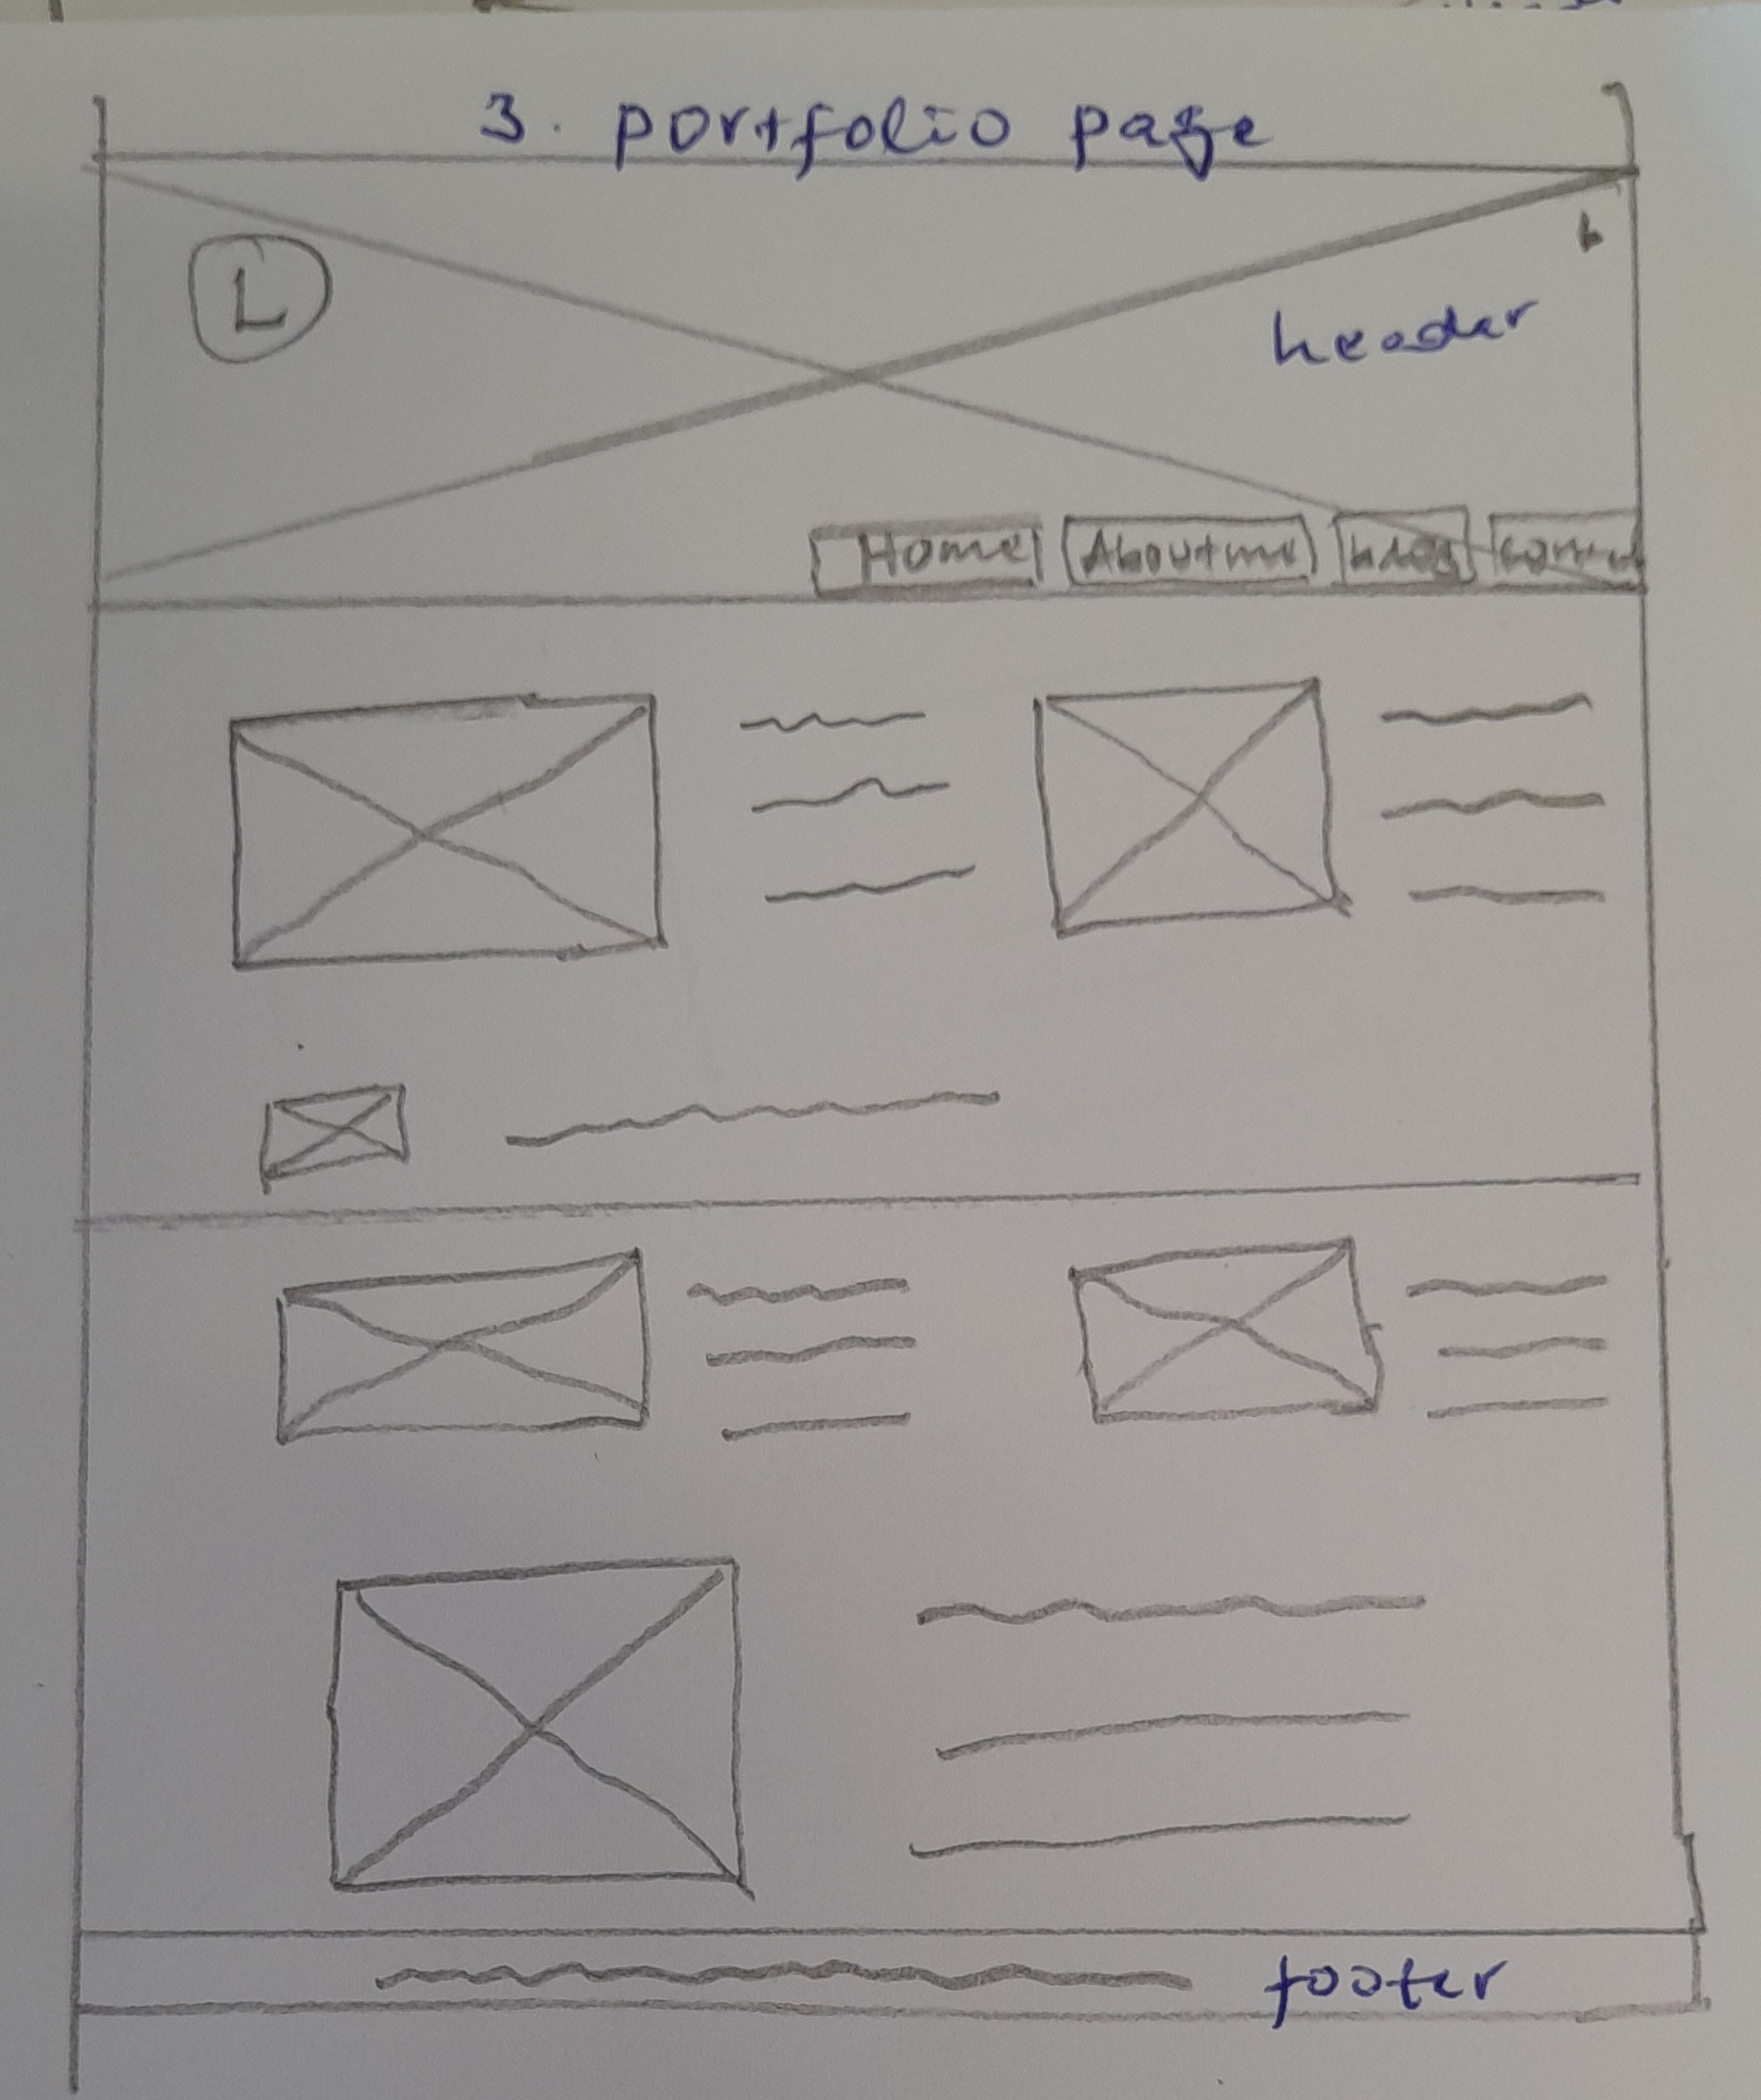 3. portfolio page
L
header
Home Aboutme
footer